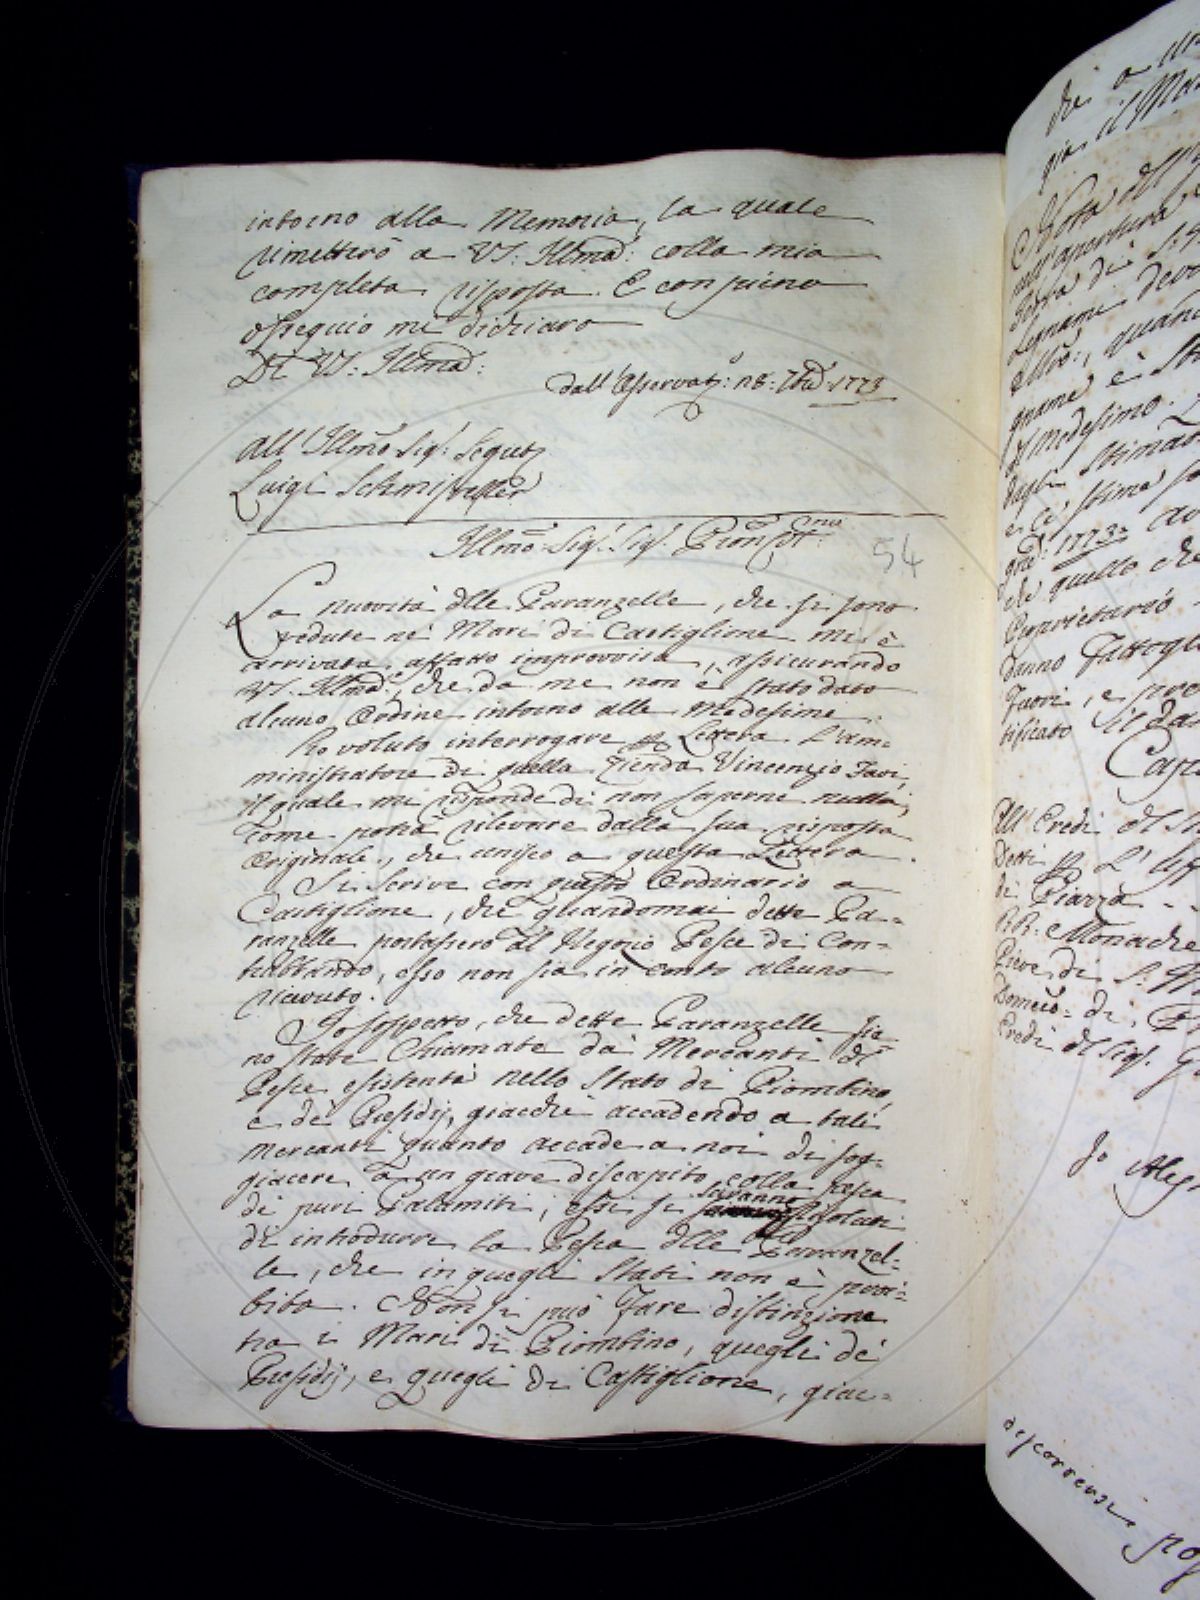 intorno alla Memoria, la quale
rimetterò a VS: Illma: colla mia
completa risposta. E con pieno
ossequio mi dichiaro
Di VS: Illma:
dall'Osservat:° 1773
All'Illmo Sig: Segret
Luigi Schmisveller
Illmo Sig: Sig: Pron
54
La nuovità dlle Paranzelle, che si sono
vedute ne' Mari di Castiglione mi è
arrivata affatto improvvisa, assicurando
VS. Illma:, che da me non è stato dato
alcuno Ordine intorno alle medesime.
Ho voluto interrogare p Lettera l'Am-
ministratore di quella Azienda Vincenzio Favi,
il quale mi risponde di non saperne nulla,
come potrà rilevare dalla sua risposta
Originale, che unisco a questa Lettera.
Si scrive con questo Ordinario a
Castiglione, che quandomai dette Pa-
ranzelle portassero al Negozio Pesce di Con-
trabbando, esso non sia in conto alcuno
ricevuto.
Io sospetto, che dette Paranzelle sia-
no state Chiamate da' Mercanti di
Pesce esistenti nello Stato di Piombino,
e de' Presidij, giacchè accadendo a tali
Mercanti quanto accade a noi di sog-
giacere a un grave discapito colla pesca
di puri Palamiti, essi si saranno risoluti
di introdurre la Pesca dlle Paranzel-
le, che in quegli Stati non è proi-
bita. Non si può fare distinzione
tra i Mari di Piombino, quegli de'
Presidij, e quegli di Castiglione, giac-
che a
già il
Nota del
all'apertura
Terra di S.
Legname
quan
gname è
p Medesimo.
dagli Stimat
e Ce' stima
1773=
che quello che
Proprietario
danno
Favori, e
tificato il
All' Eredi dl
Detti p L'
di Piazza - -
RR. Monache
Pieve di S.
Domco: di
Eredi dl Sigr.
Io